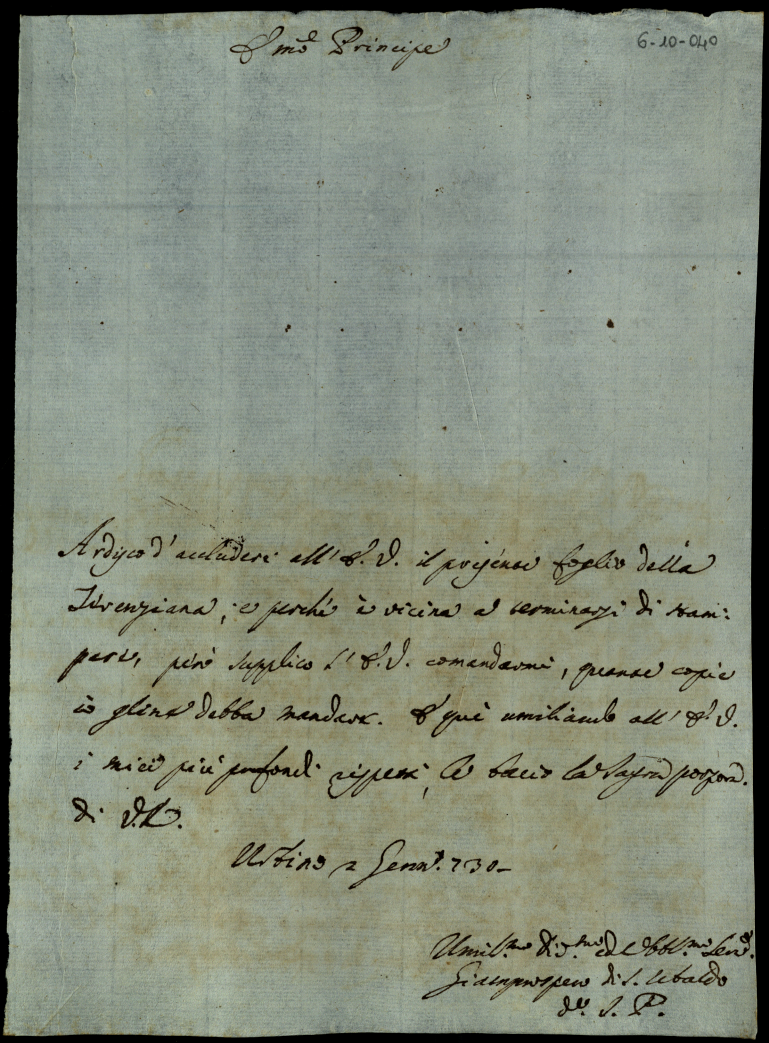 Emo Principe
6-10-040
Ardisco d'accludere all'E. V. il presente foglio della
Terenziana; e perché è vicina a terminarsi di stam:
pare, però supplico l'E. V. comandarmi, quante copie
io gliene debba mandare. E quì umiliando all'E. V.
i miei più profondi rispetti, le bacio la Sagra porpora.
Di V. E.
Urbino 2 Genn. 730
Umil.mo Div.mo ed Obbl.mo Serv.e
Giamprospero di S. Ubaldo
d.e S. P.